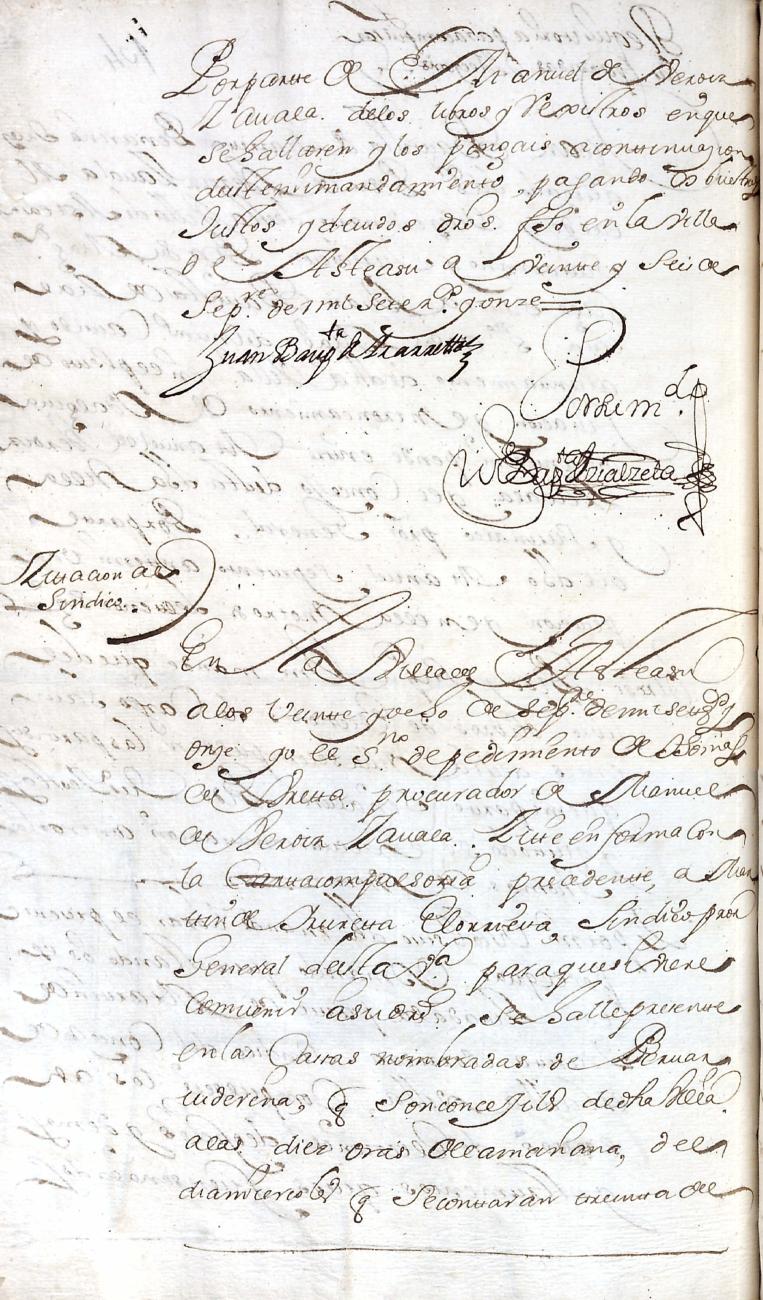 Por parte de Manuel de Beroiz
Zauala. delos libros y Rexistros enque
se hallaren y los pongais a continuazion
deste mi mandamiento, pagando os buestros
Justos y deuidos dros. fho en la Villa
de Asteasu a Veinte y Seis de
Sepre de mil Setezos y onze
Juan Bapta de
Por su mdo
Bapta de Yrialzeta
Zitacion al
Sindico
En La Villa de Asteasu
a los Veinte y ocho de Sepre de mil setezos y
onze yo el Sno de pedimiento de
de Vrretta procurador de Manuel
de Beroiz Zauala. Zite en forma con
la Cartacompulsoria precedente, a Mar
tin de Yruretta Elorrieta, Sindico pror
General desta Va para que si Viere
Combenir a su dro se halle presente
en las Cassas nombradas de
q Son conceJiles de dha Villa
a las diez oras de la mañana, del
dia miercoles q Se contaran treinta del